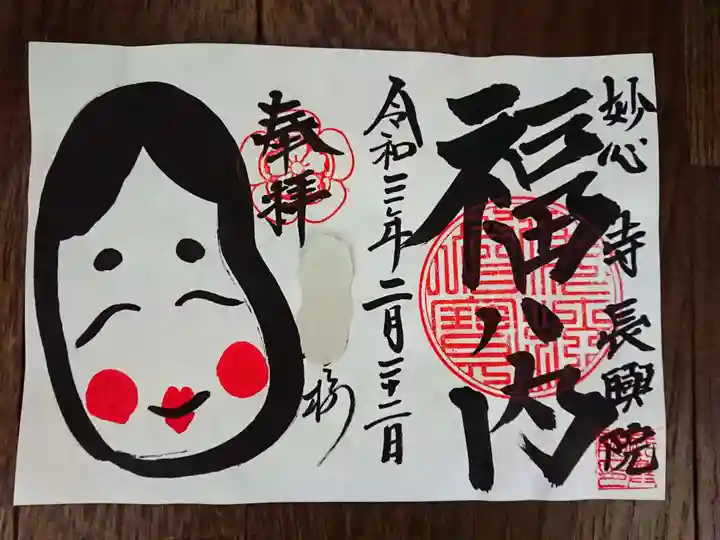 妙心寺長興院
福ハ内
令和三年二月二十二日
奉拝
様